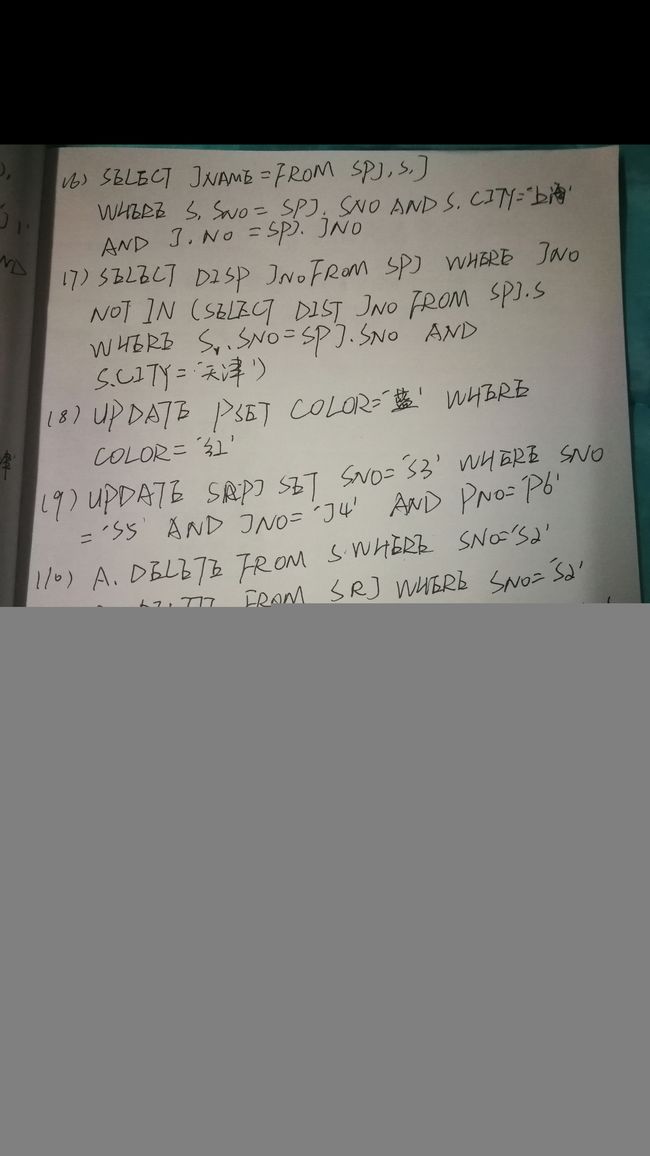 (6) SELECT JNAME = FROM SPJ, S, J
WHERE S. SNO = SPJ. SNO AND S. CITY='上海'
AND J. NO = SPJ. JNO
(7) SELECT DISP JNO FROM SPJ WHERE JNO
NOT IN (SELECT DIST JNO FROM SPJ.S
WHERE S. SNO=SPJ.SNO AND
S.CITY='天津')
(8) UPDATE PSET COLOR='蓝' WHERE
COLOR='红'
(9) UPDATE SPJ SET SNO='S3' WHERE SNO
='S5' AND JNO='J4' AND PNO='P6'
(10) A. DELETE FROM S. WHERE SNO='S2'
FROM SRJ WHERE SNO='S2'